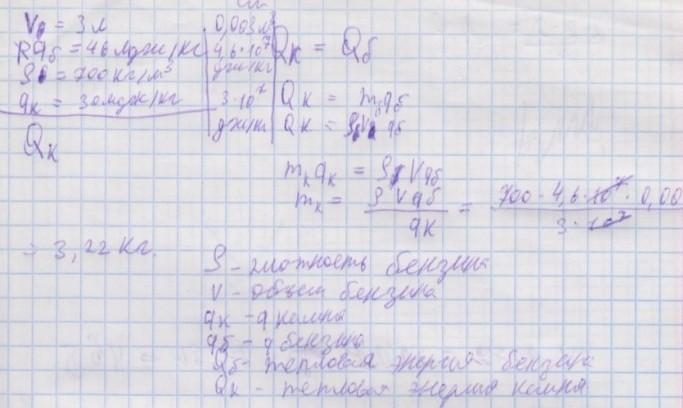 V = 3 л | 0,003 м³
qб = 46 мдж/кг | 4,6·10⁷ дж/кг
ρ = 700 кг/м³
qк = 30 мдж/кг | 3·10⁷ дж/кг
Qк
Qк = Qб
Qк = mбqб
Qк = ρV qб
mкqк = ρVqб
mк = ρVqб / qк = 700·4,6·10⁷·0,00 / 3·10⁷
= 3,22 кг.
ρ – плотность бензина
V – объем бензина
qк – q камня
qб – q бензина
Qб – тепловая энергия бензина
Qк – тепловая энергия камня